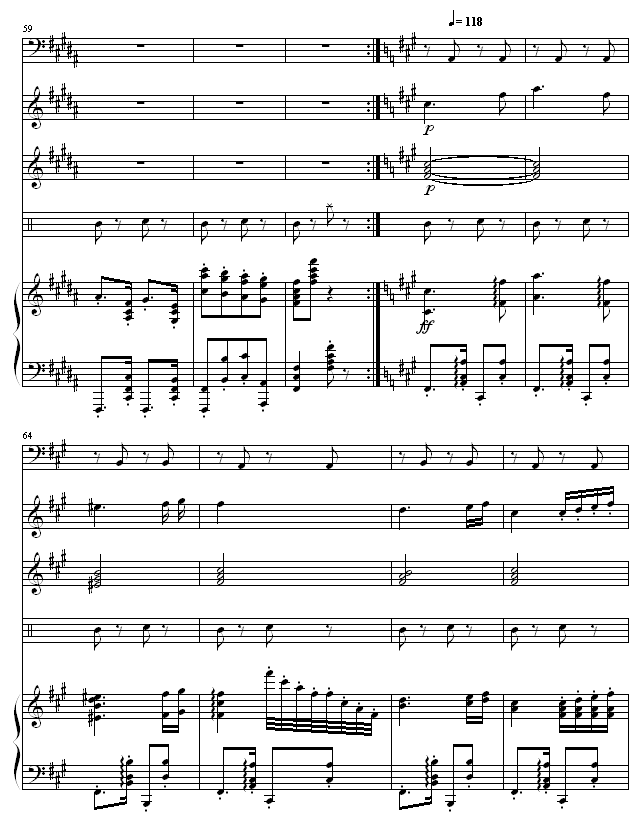 59
♩= 118
p
p
ff
64